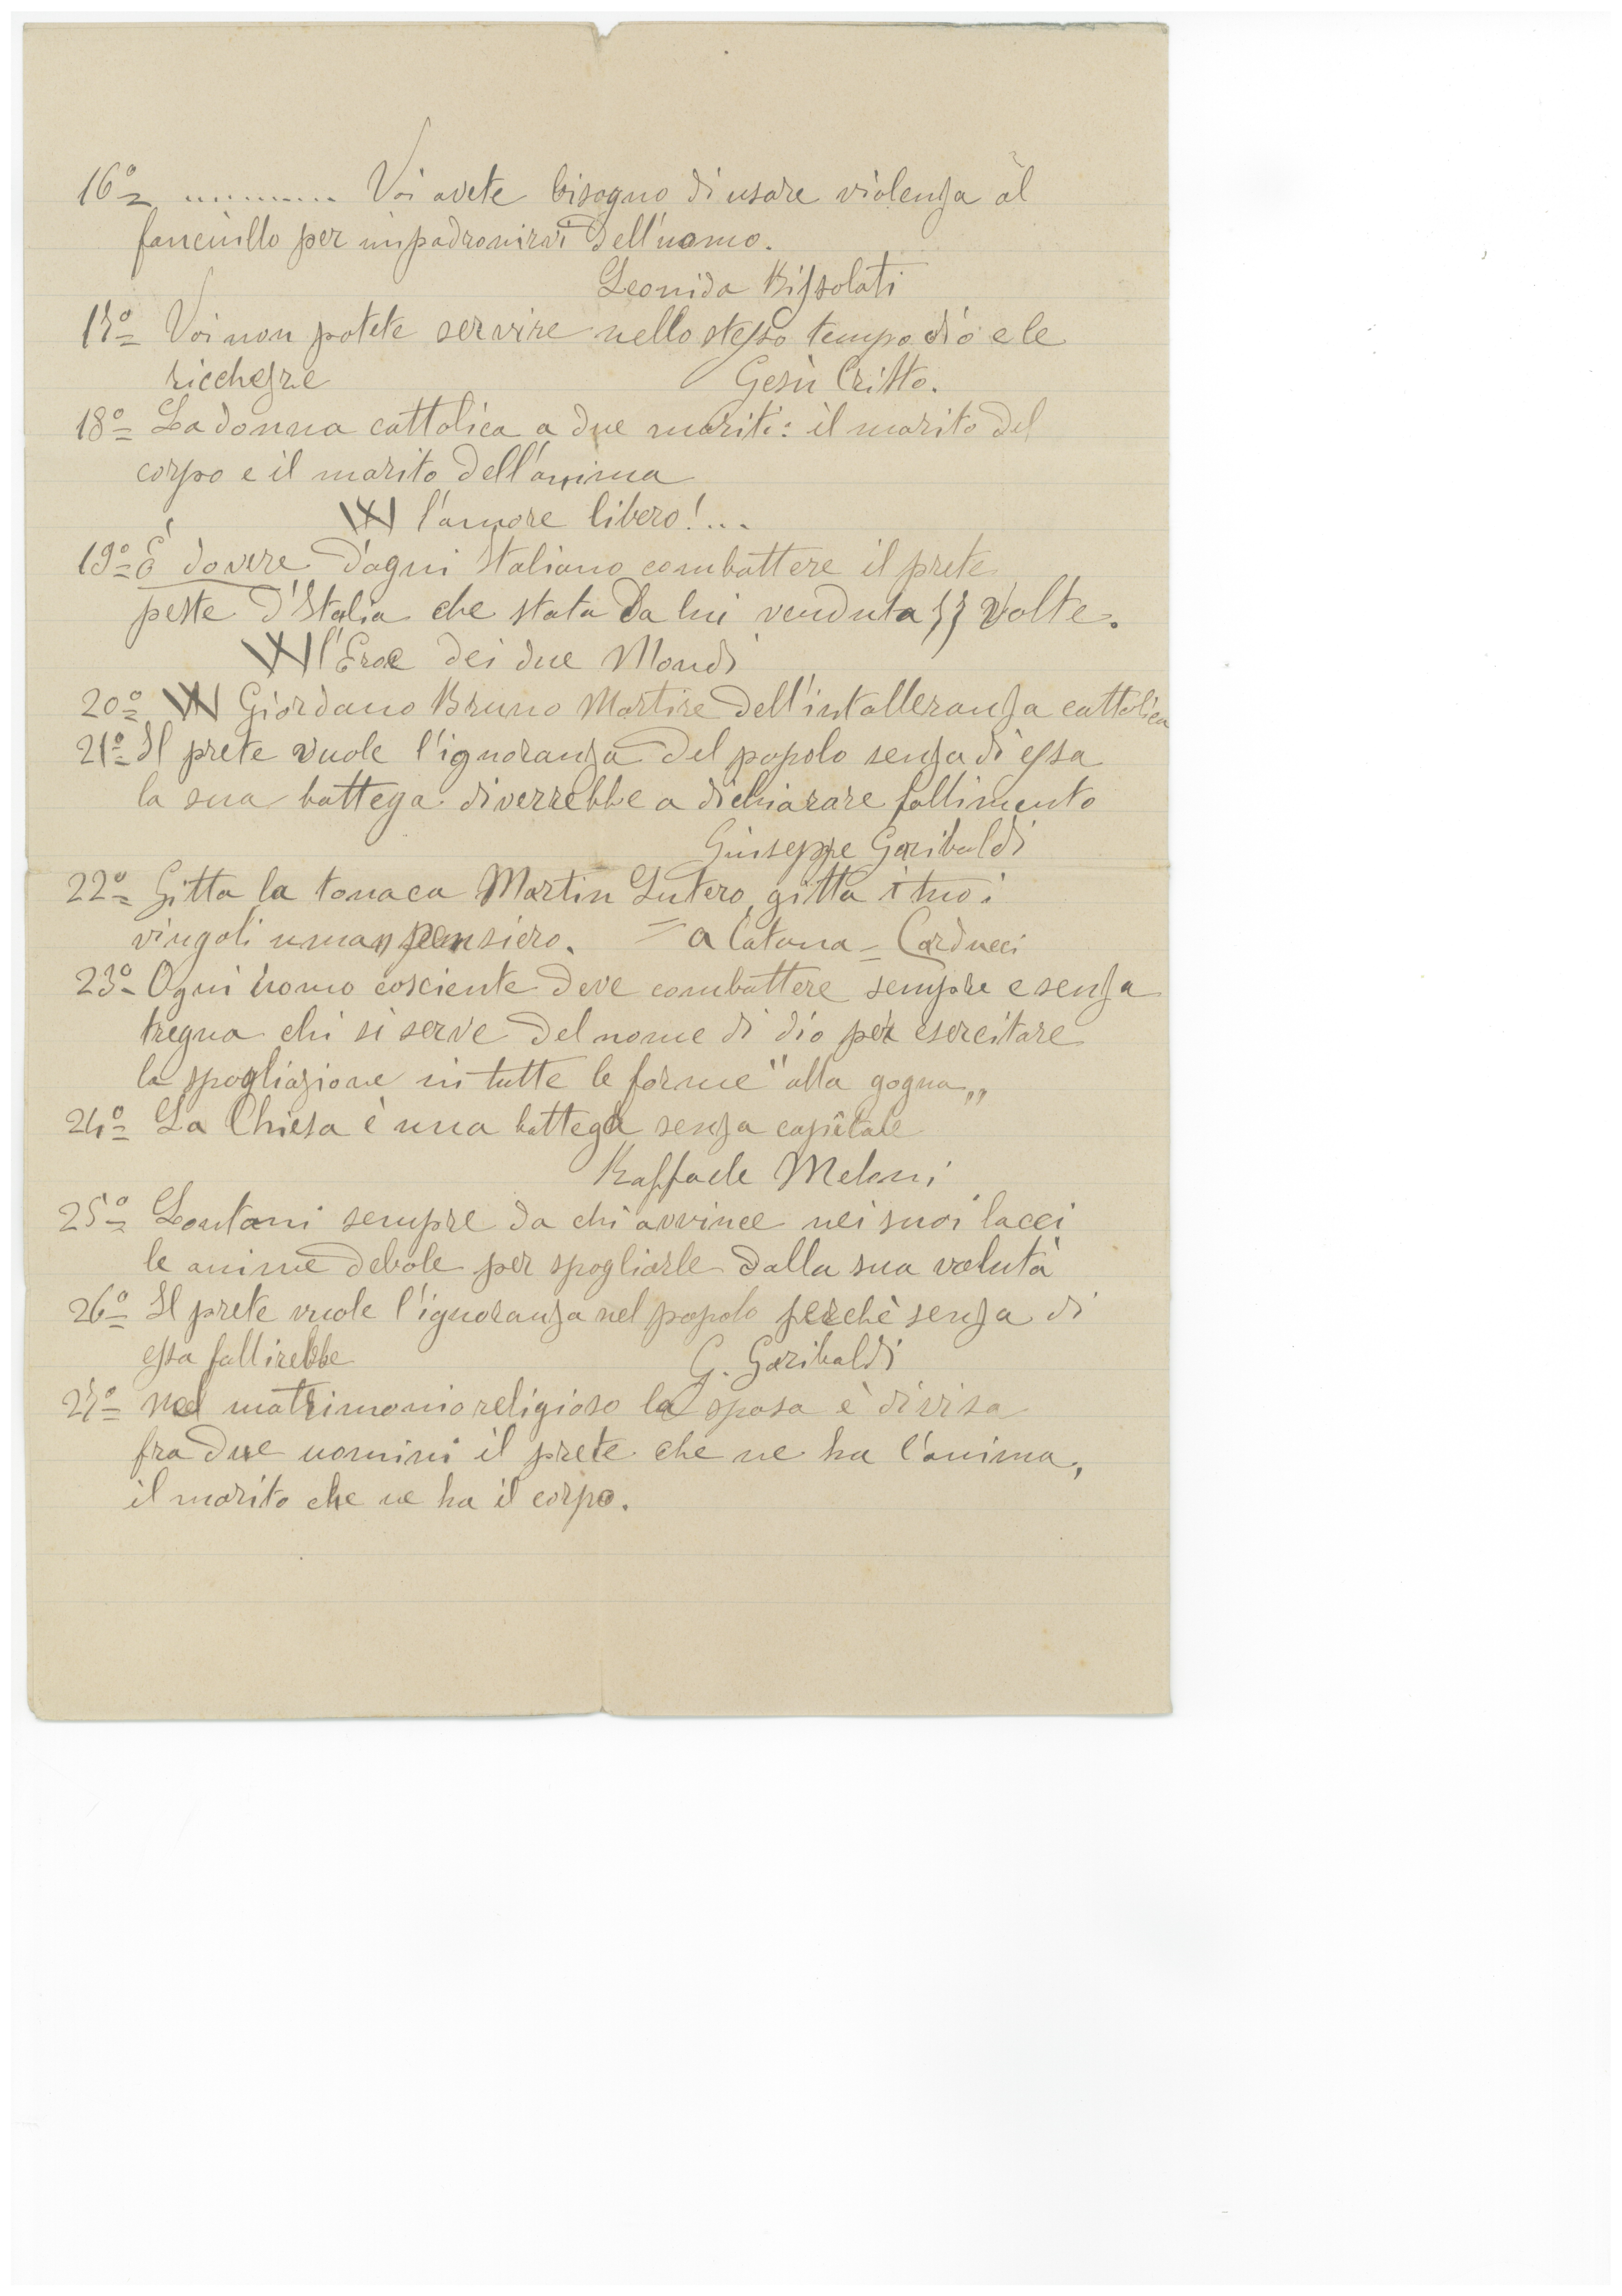 16º= .......... Voi avete bisogno di usare violenza al
fanciullo per impadronirvi dell'uomo.
Leonida Bissolati
17º= Voi non potete servire nello stesso tempo dio e le
ricchezze Gesù Cristo.
18º= La donna cattolica a due mariti: il marito del
corpo e il marito dell'anima
W l'amore libero!...
19º= È dovere d'ogni Italiano combattere il prete
peste d'Italia che stata da lui venduta 77 volte.
W l'Eroe dei due Mondi
20º= W Giordano Bruno Martire dell'intolleranza cattolica
21º= Il prete vuole l'ignoranza del popolo senza di essa
la sua bottega diverrebbe a dichiarare fallimento
Giuseppe Garibaldi
22º= Gitta la tonaca Martin Lutero, gitta i tuoi
vingoli uman pensiero. = a Catona = Carducci
23º= Ogni uomo cosciente deve combattere sempre e senza
tregua chi si serve del nome di dio per esercitare
la spogliazione in tutte le forme "alla gogna„
24º= La Chiesa è una bottega senza capitale
Raffaele Meloni
25º= Lontani sempre da chi avvince nei suoi lacci
le anime debole per spogliarle dalla sua volutà
26º= Il prete vuole l'ignoranza nel popolo perchè senza di
essa fallirebbe G. Garibaldi
27º= Nel matrimonio religioso la sposa è divisa
fra due uomini il prete che ne ha l'anima,
il marito che ne ha il corpo.